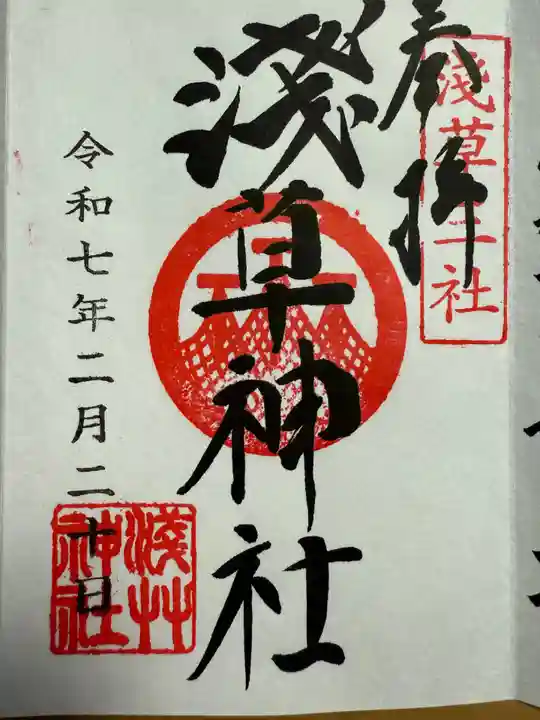 奉拝
淺草三社
淺草神社
令和七年二月二十日
淺草
神社